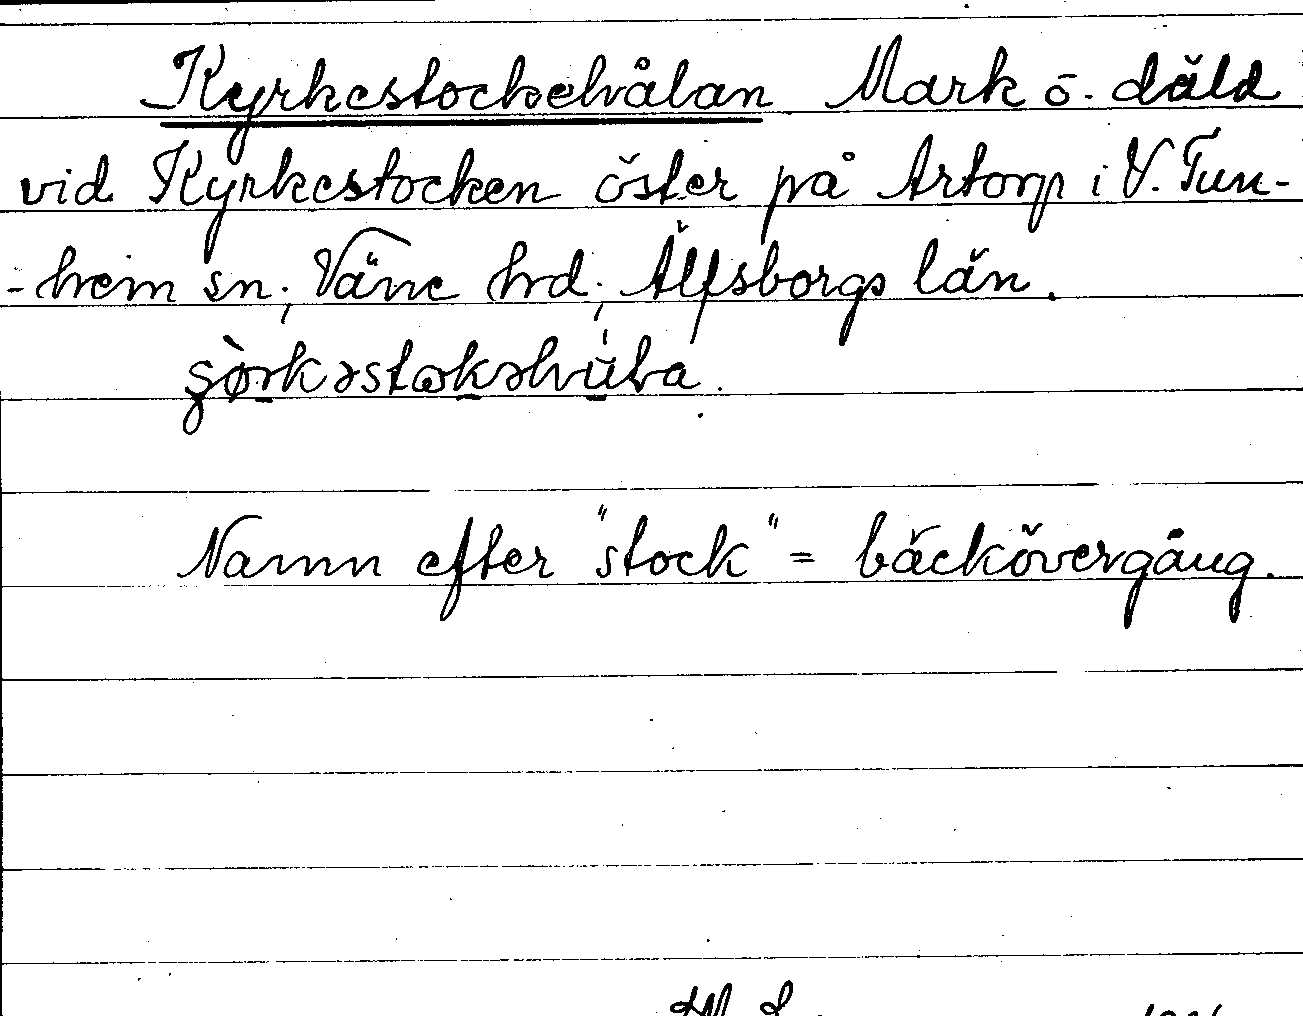 Kyrkestockehvålan Mark o. däld
vid Kyrkestocken öster på Artorp i V. Tun-
-hem sn, Väne hd, Älfsborgs län.
Namn efter "stock" = bäckövergång.